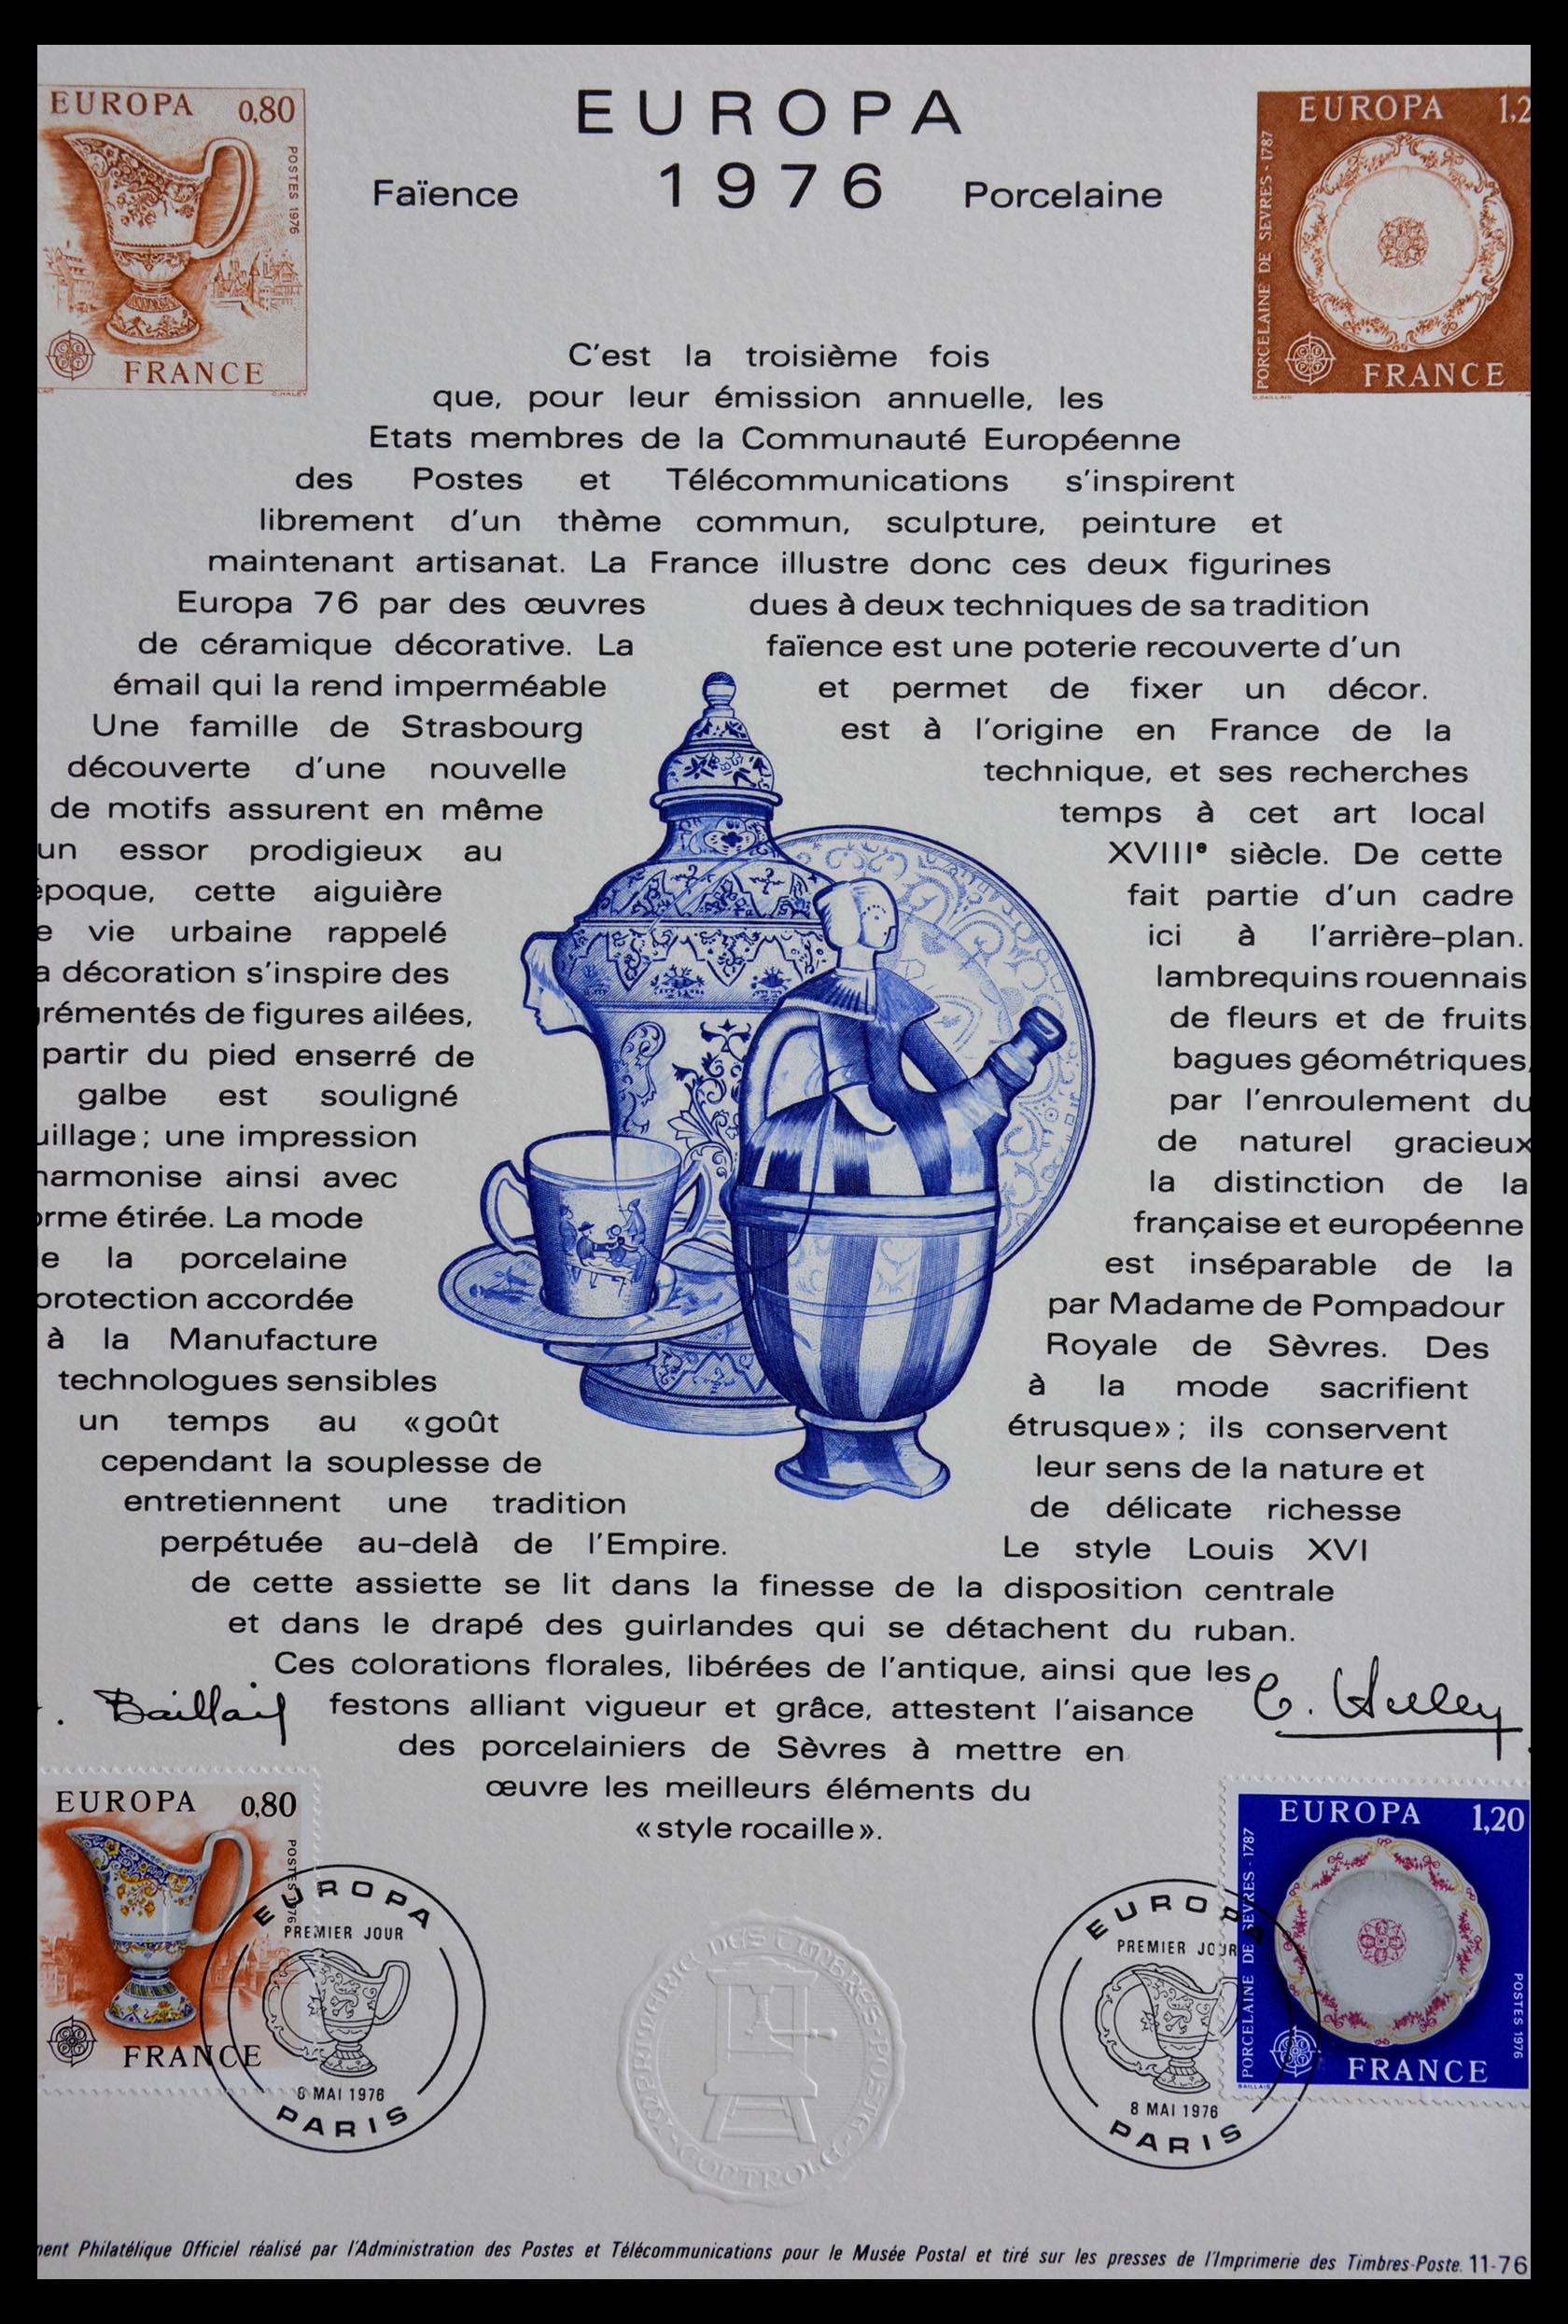 EUROPA 0,80
POSTES 1976
FRANCE
C.HALEY
EUROPA
1976
Faïence
Porcelaine
EUROPA 1,2
PORCELAINE DE SEVRES - 1787
FRANCE
C'est la troisième fois
que, pour leur émission annuelle, les
Etats membres de la Communauté Européenne
des Postes et Télécommunications s'inspirent
librement d'un thème commun, sculpture, peinture et
maintenant artisanat. La France illustre donc ces deux figurines
Europa 76 par des œuvres dues à deux techniques de sa tradition
de céramique décorative. La faïence est une poterie recouverte d'un
émail qui la rend imperméable et permet de fixer un décor.
Une famille de Strasbourg est à l'origine en France de la
découverte d'une nouvelle technique, et ses recherches
de motifs assurent en même temps à cet art local
un essor prodigieux au XVIIIe siècle. De cette
époque, cette aiguière fait partie d'un cadre
e vie urbaine rappelé ici à l'arrière-plan.
a décoration s'inspire des lambrequins rouennais
grémentés de figures ailées, de fleurs et de fruits
partir du pied enserré de bagues géométriques,
galbe est souligné par l'enroulement du
uillage; une impression de naturel gracieux
harmonise ainsi avec la distinction de la
orme étirée. La mode française et européenne
e la porcelaine est inséparable de la
protection accordée par Madame de Pompadour
à la Manufacture Royale de Sèvres. Des
technologues sensibles à la mode sacrifient
un temps au «goût étrusque»; ils conservent
cependant la souplesse de leur sens de la nature et
entretiennent une tradition de délicate richesse
perpétuée au-delà de l'Empire. Le style Louis XVI
de cette assiette se lit dans la finesse de la disposition centrale
et dans le drapé des guirlandes qui se détachent du ruban.
Ces colorations florales, libérées de l'antique, ainsi que les
festons alliant vigueur et grâce, attestent l'aisance
des porcelainiers de Sèvres à mettre en
œuvre les meilleurs éléments du
«style rocaille».
. Baillais
C. Haley
EUROPA 0,80
POSTES 1976
FRANCE
EUROPA
PREMIER JOUR
8 MAI 1976
PARIS
IMPRIMERIE DES TIMBRES-POSTE
CONTROLE
EUROPA
PREMIER JOUR
8 MAI 1976
PARIS
EUROPA 1,20
PORCELAINE DE SEVRES - 1787
POSTES 1976
FRANCE
BAILLAIS
ment Philatélique Officiel réalisé par l'Administration des Postes et Télécommunications pour le Musée Postal et tiré sur les presses de l'Imprimerie des Timbres-Poste. 11-76